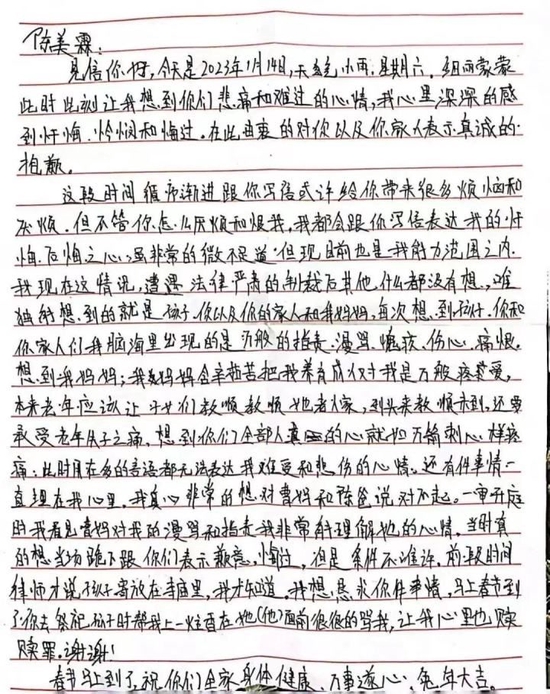 陈美霖:
见信你好,今天是2023年1月14日,天气小雨,星期六,细雨蒙蒙
此时此刻让我想到你们悲痛和难过的心情,我心里深深的感
到忏悔、怜悯和悔过。在此由衷的对你以及你家人表示真诚的
抱歉。
这段时间循序渐进跟你写信或许给你带来很多烦恼和
厌烦。但不管你怎么厌烦和恨我,我都会跟你写信表达我的忏
悔。后悔之心虽非常的微不足道,但现目前也是我能力范围之内。
我现在这情况,遭遇法律严肃的制裁后其他什么都没有想,唯
独能想到的就是孩子、你以及你的家人和我妈妈,每次想到孩子、你和
你家人们我脑海里出现的是万般的指责、漫骂、愤怒、伤心、痛恨。
想到我妈妈;我妈妈含辛茹苦把我养育成人对我是万般疼爱,
本来老年应该让子女们孝顺孝顺她老人家,到头来孝顺未到,还要
承受老年失子之痛。想到你们全部人的心就如万箭刺心一样疼
痛;此时用在多的言语都无法表达我难受和悲伤的心情。还有件事情一
直埋在我心里。我真心非常的想对曹妈和陈爸说对不起。一审开庭
时我看见曹妈对我的漫骂和指责我非常能理解她的心情。当时真
的想当场跪下跟你们表示歉意、悔过,但是条件不准许。前段时间
律师才说孩子寄放在寺庙里,我才知道。我想恳求你件事情,马上春节到
了你去祭祀孩子时帮我上一炷香在她(他)面前很很的骂我,让我心里也赎
赎罪。谢谢!
春节马上到了,祝你们全家身体健康、万事遂心、兔年大吉。